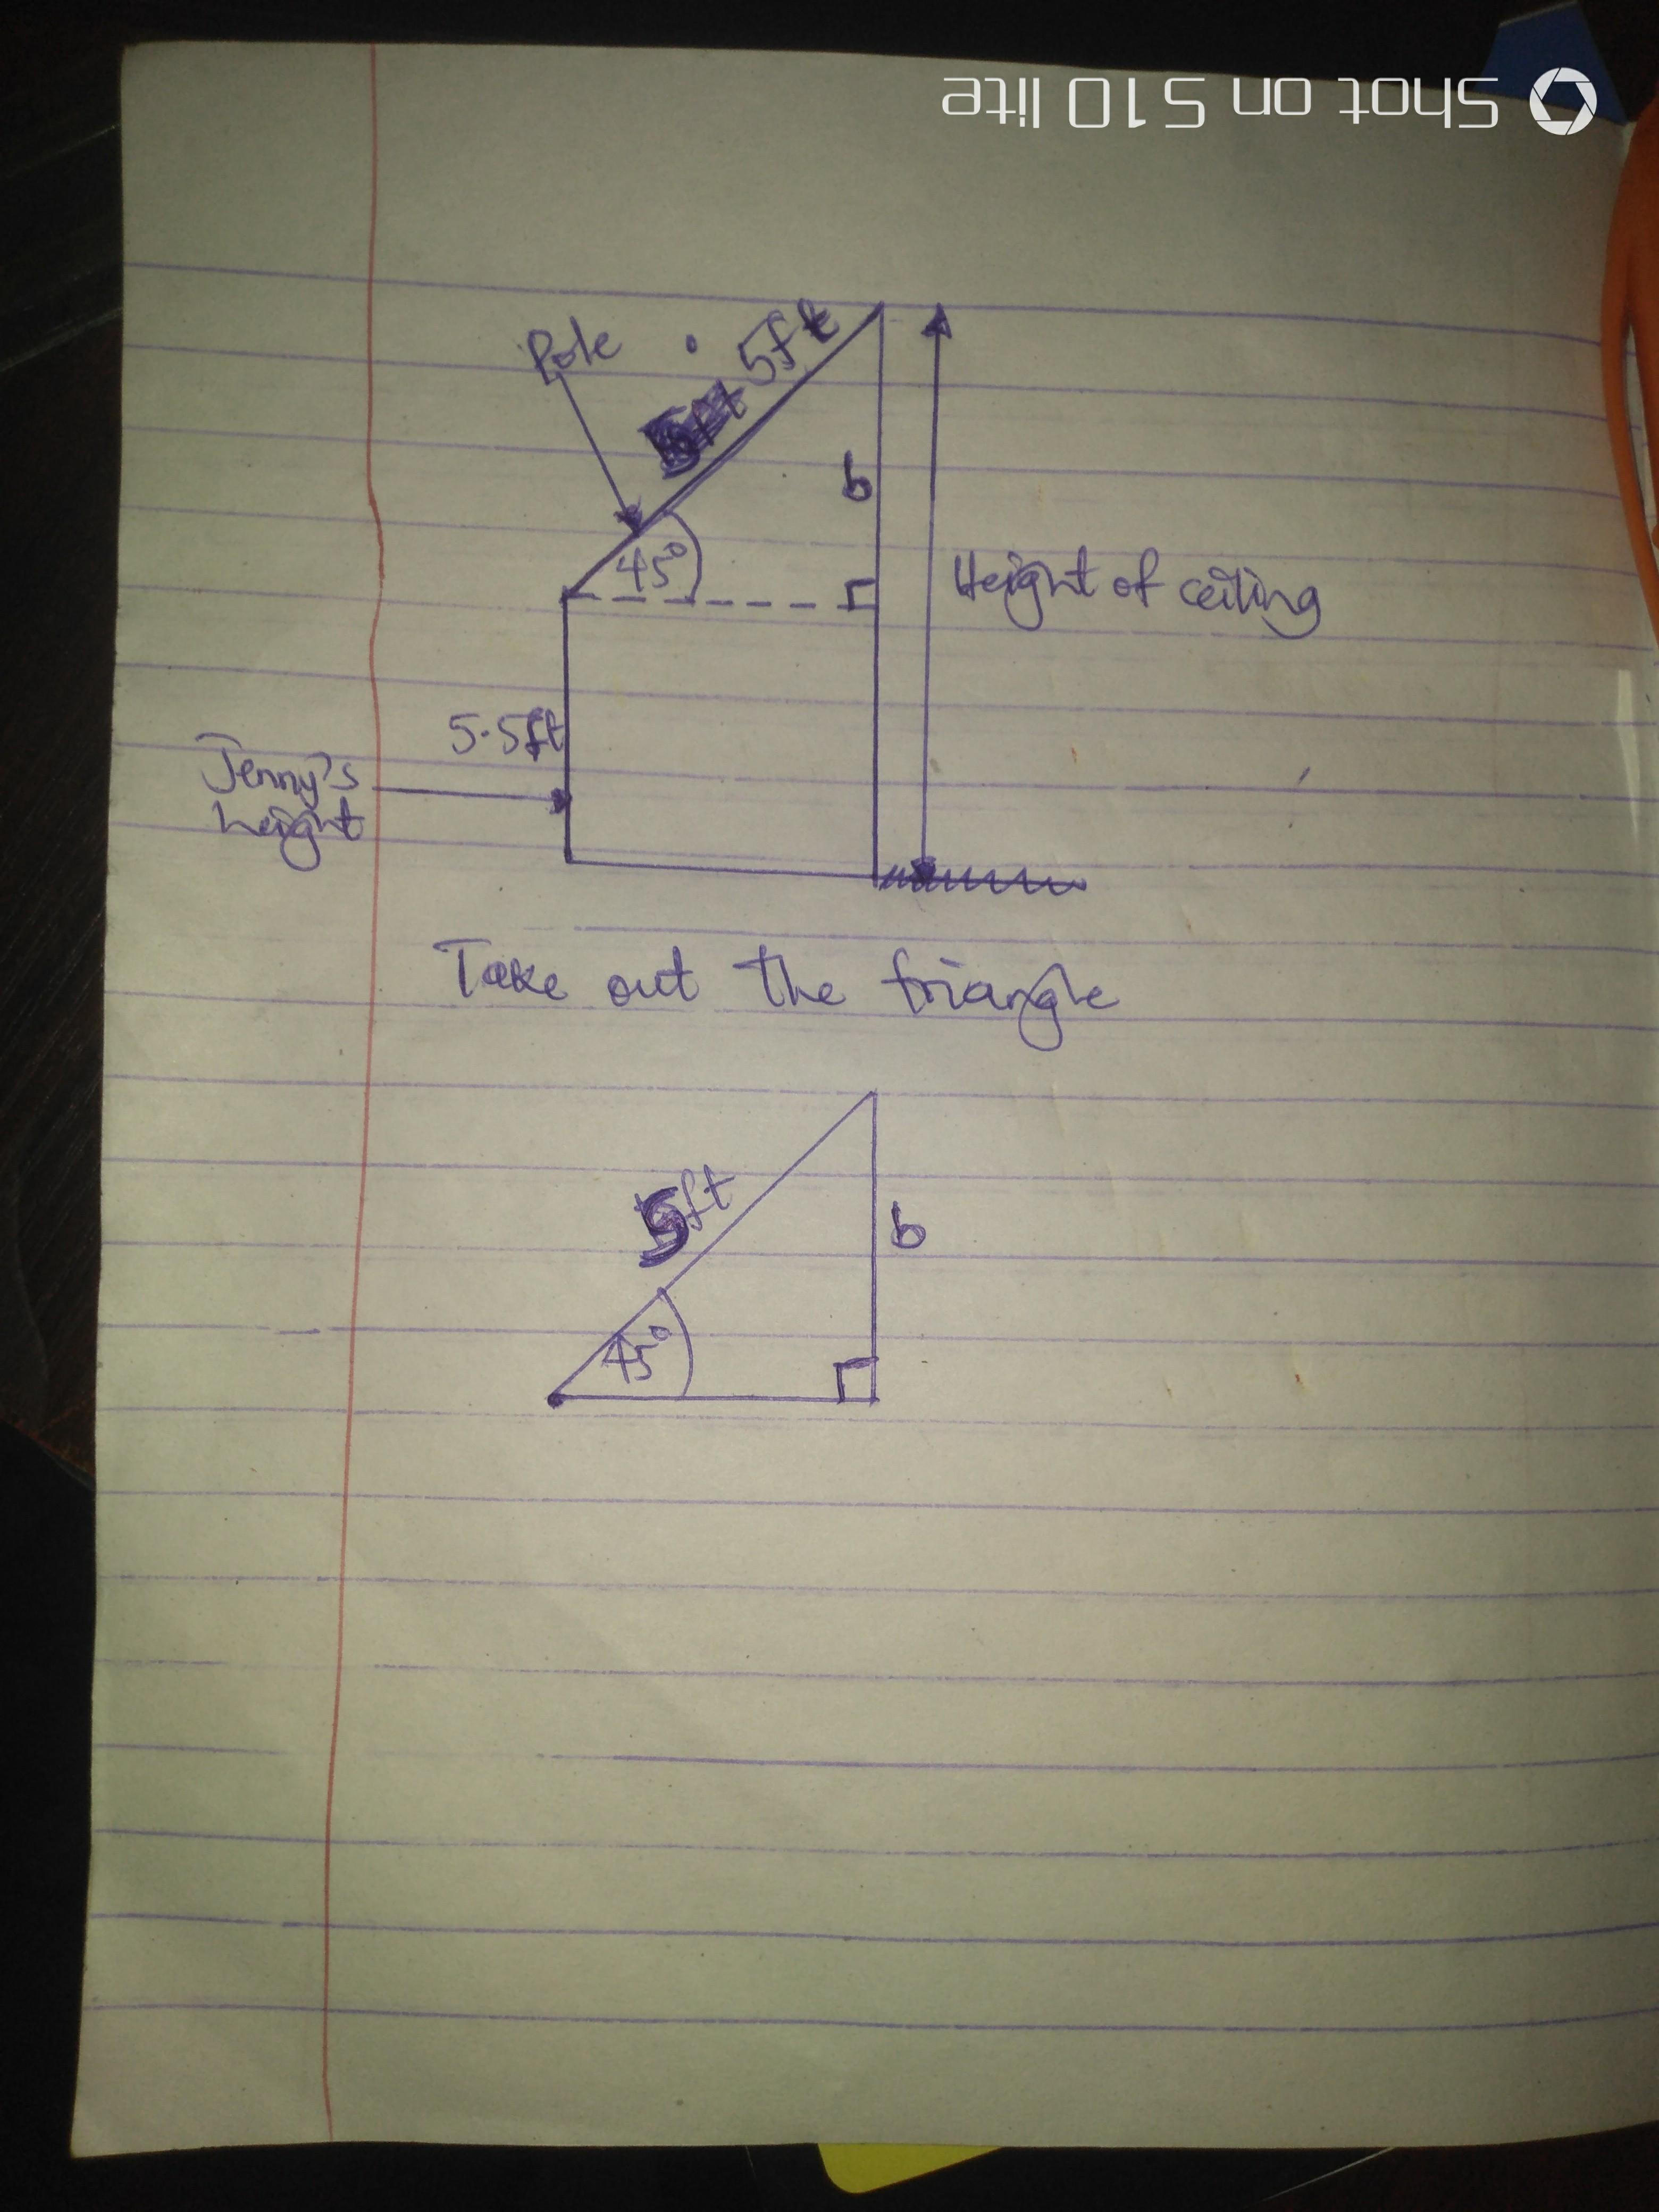 Shot on S10 lite
Pole
5ft
b
45°
Height of ceiling
5.5ft
Jenny's
height
Take out the triangle
5ft
b
45°